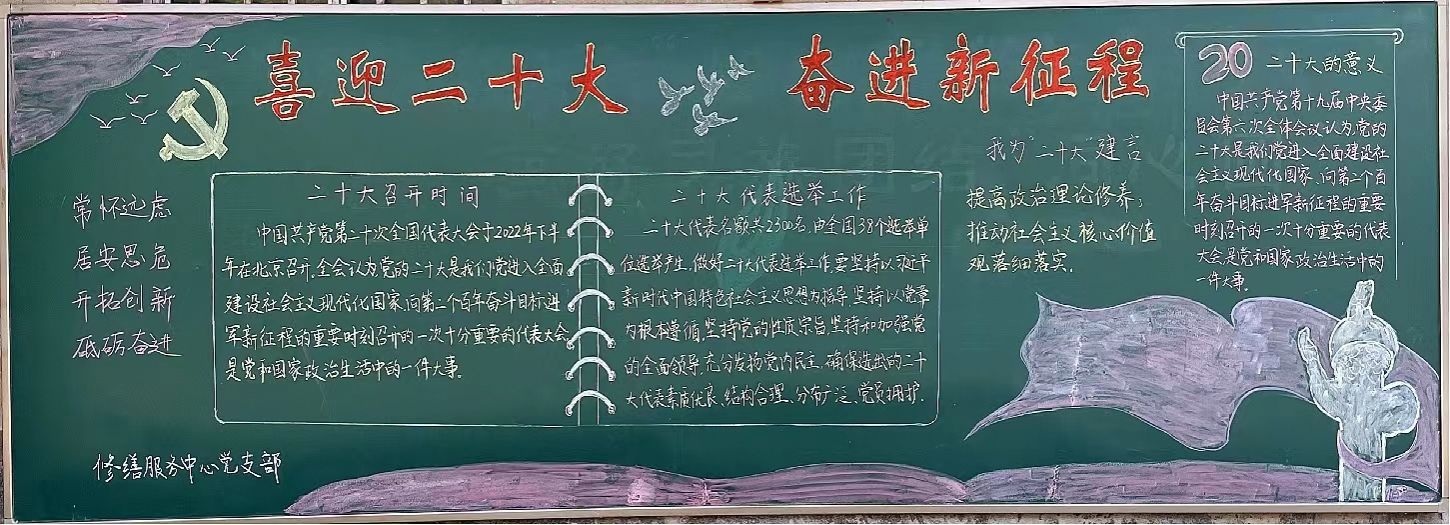 喜迎二十大 奋进新征程
常怀远虑
居安思危
开拓创新
砥砺奋进
二十大召开时间
中国共产党第二十次全国代表大会于2022年下半
年在北京召开,全会认为党的二十大是我们党进入全面
建设社会主义现代化国家、向第二个百年奋斗目标进
军新征程的重要时刻召开的一次十分重要的代表大会
是党和国家政治生活中的一件大事。
二十大代表选举工作
二十大代表名额共2300名,由全国38个选举单
位选举产生,做好二十大代表选举工作要坚持以习近平
新时代中国特色社会主义思想为指导,坚持以党章
为根本遵循,坚持党的性质宗旨,坚持和加强党
的全面领导,充分发扬党内民主,确保选出的二十
大代表素质优良、结构合理、分布广泛、党员拥护.
我为"二十大"建言
提高政治理论修养;
推动社会主义核心价值
观落细落实.
20 二十大的意义
中国共产党第十九届中央委
员会第六次全体会议认为,党的
二十大是我们党进入全面建设社
会主义现代化国家、向第二个百
年奋斗目标进军新征程的重要
时刻召开的一次十分重要的代表
大会是党和国家政治生活中的
一件大事.
修缮服务中心党支部